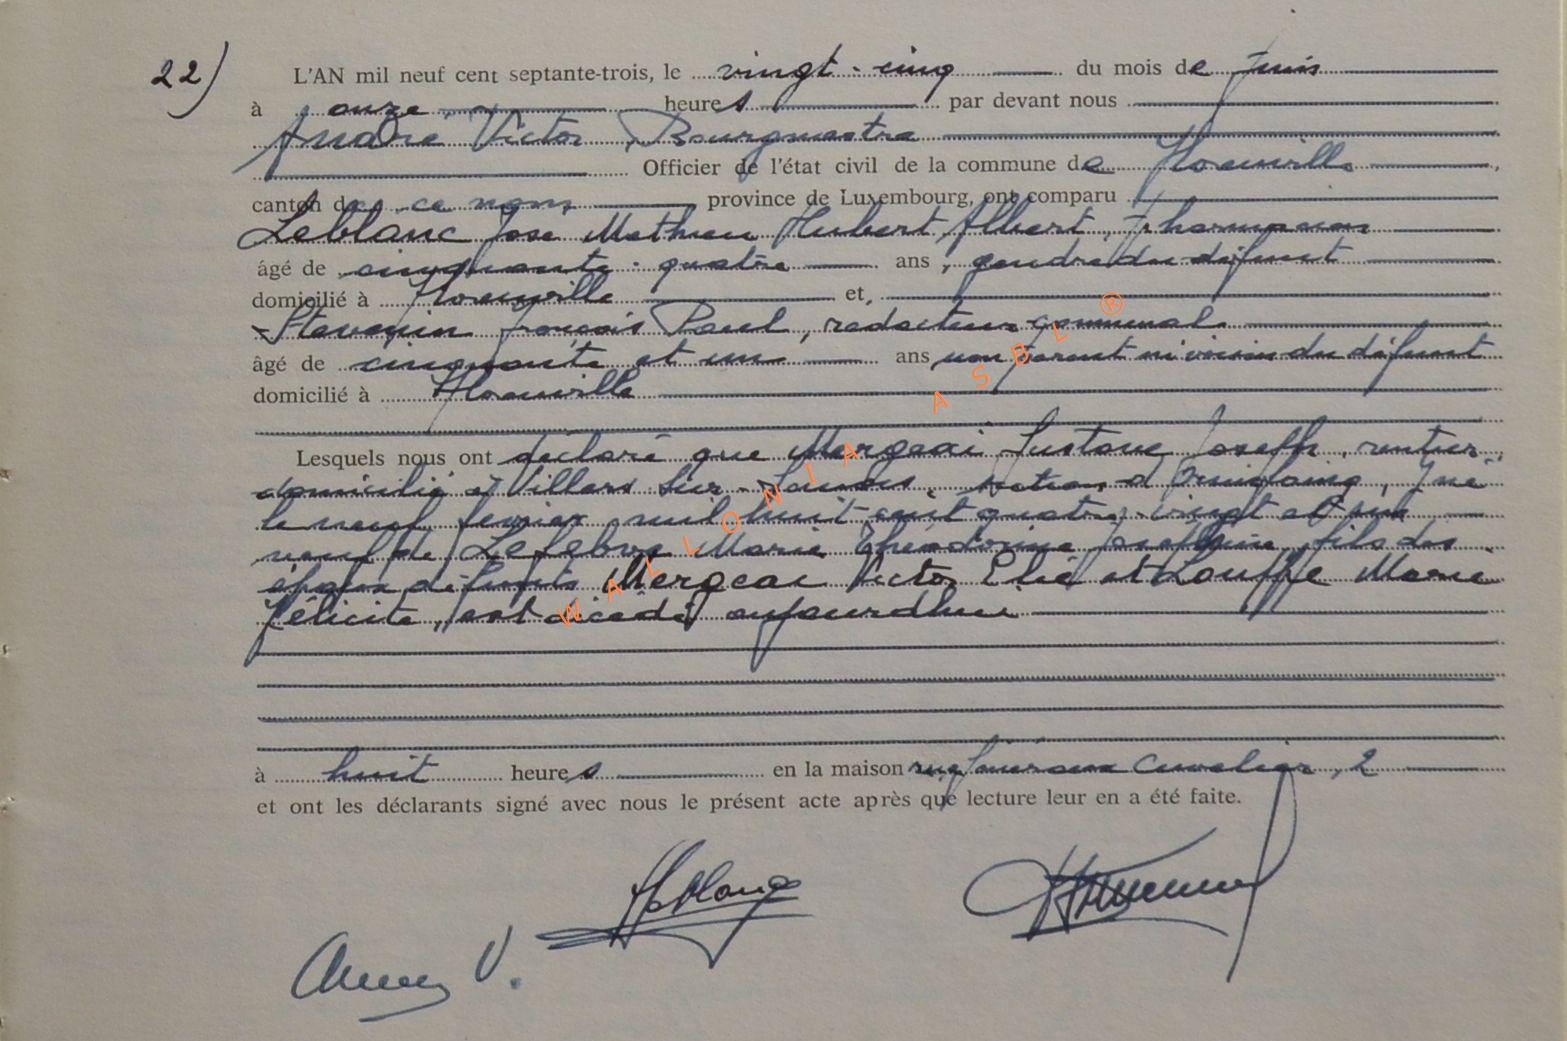 22) L'AN mil neuf cent septante-trois, le vingt-cinq du mois de Juin
à onze heures par devant nous
André Victor, Bourgmestre
Officier de l'état civil de la commune de Florenville
canton de ce nom, province de Luxembourg, ont comparu
Leblanc José Mathieu Hubert Albert, Pharmacien
âgé de cinquante-quatre ans, gendre du défunt
domicilié à Florenville et,
François Paul, rédacteur communal
âgé de cinquante et un ans non parent ni voisin du défunt
domicilié à Florenville
Lesquels nous ont déclaré que Mergeai Gustave Joseph, rentier
domicilié à Villers sur-Semois, section d'
le neuf février mil huit cent quatre-vingt et un
veuf de Lefebvre Marie Théodorine Joséphine, fils des
époux défunts Mergeai Victor Elie et Louffe Marie
Félicité, est décédé aujourdhui
à huit heures en la maison rue Cuvelier, 2
et ont les déclarants signé avec nous le présent acte après que lecture leur en a été faite.
WALLONIA ASBL ®